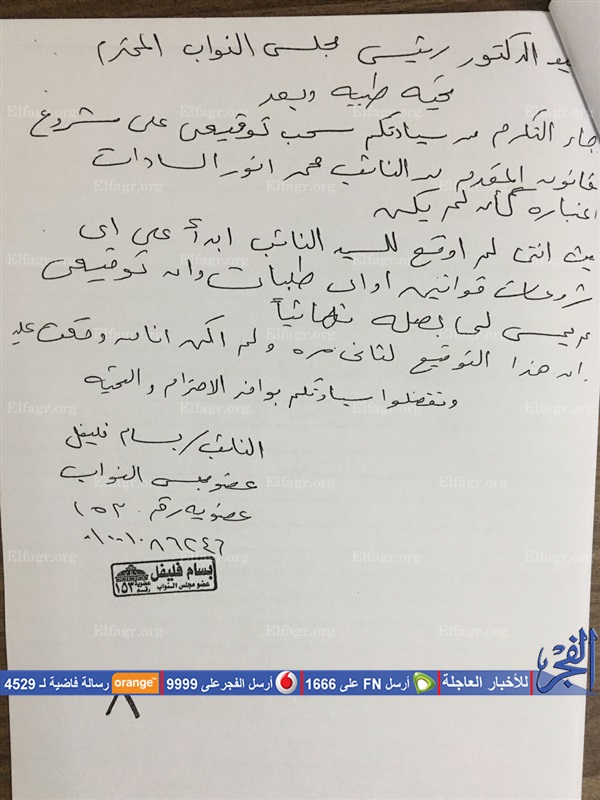 يد الدكتور رئيس مجلس النواب المحترم
تحيه طيبه وبعد
جاء التكرم من سيادتكم سحب توقيعى على مشروع
قانون المقدم من النائب محمد انور السادات
اعتباره كأن لم يكن
يث اننى لم اوقع للسيد النائب ابدأ على اى
شروعات قوانين او اى طلبات وان توقيعى
ليس لى بصله نهائياً
ان هذا التوقيع لثانى مره ولم اكن انا من وقعت عليه
وتفضلوا سيادتكم بوافر الاحترام والتحيه
النائب / بسام فليفل
عضو مجلس النواب
عضويه رقم ١٥٣
٠١٠٠١٠٨٦٢٤٦
بسام فليفل
عضو مجلس النواب
عضوية رقم ١٥٣
Elfagr.org
الفجر
للأخبار العاجلة
أرسل FN على 1666
أرسل الفجر على 9999
orange رسالة فاضية لـ 4529